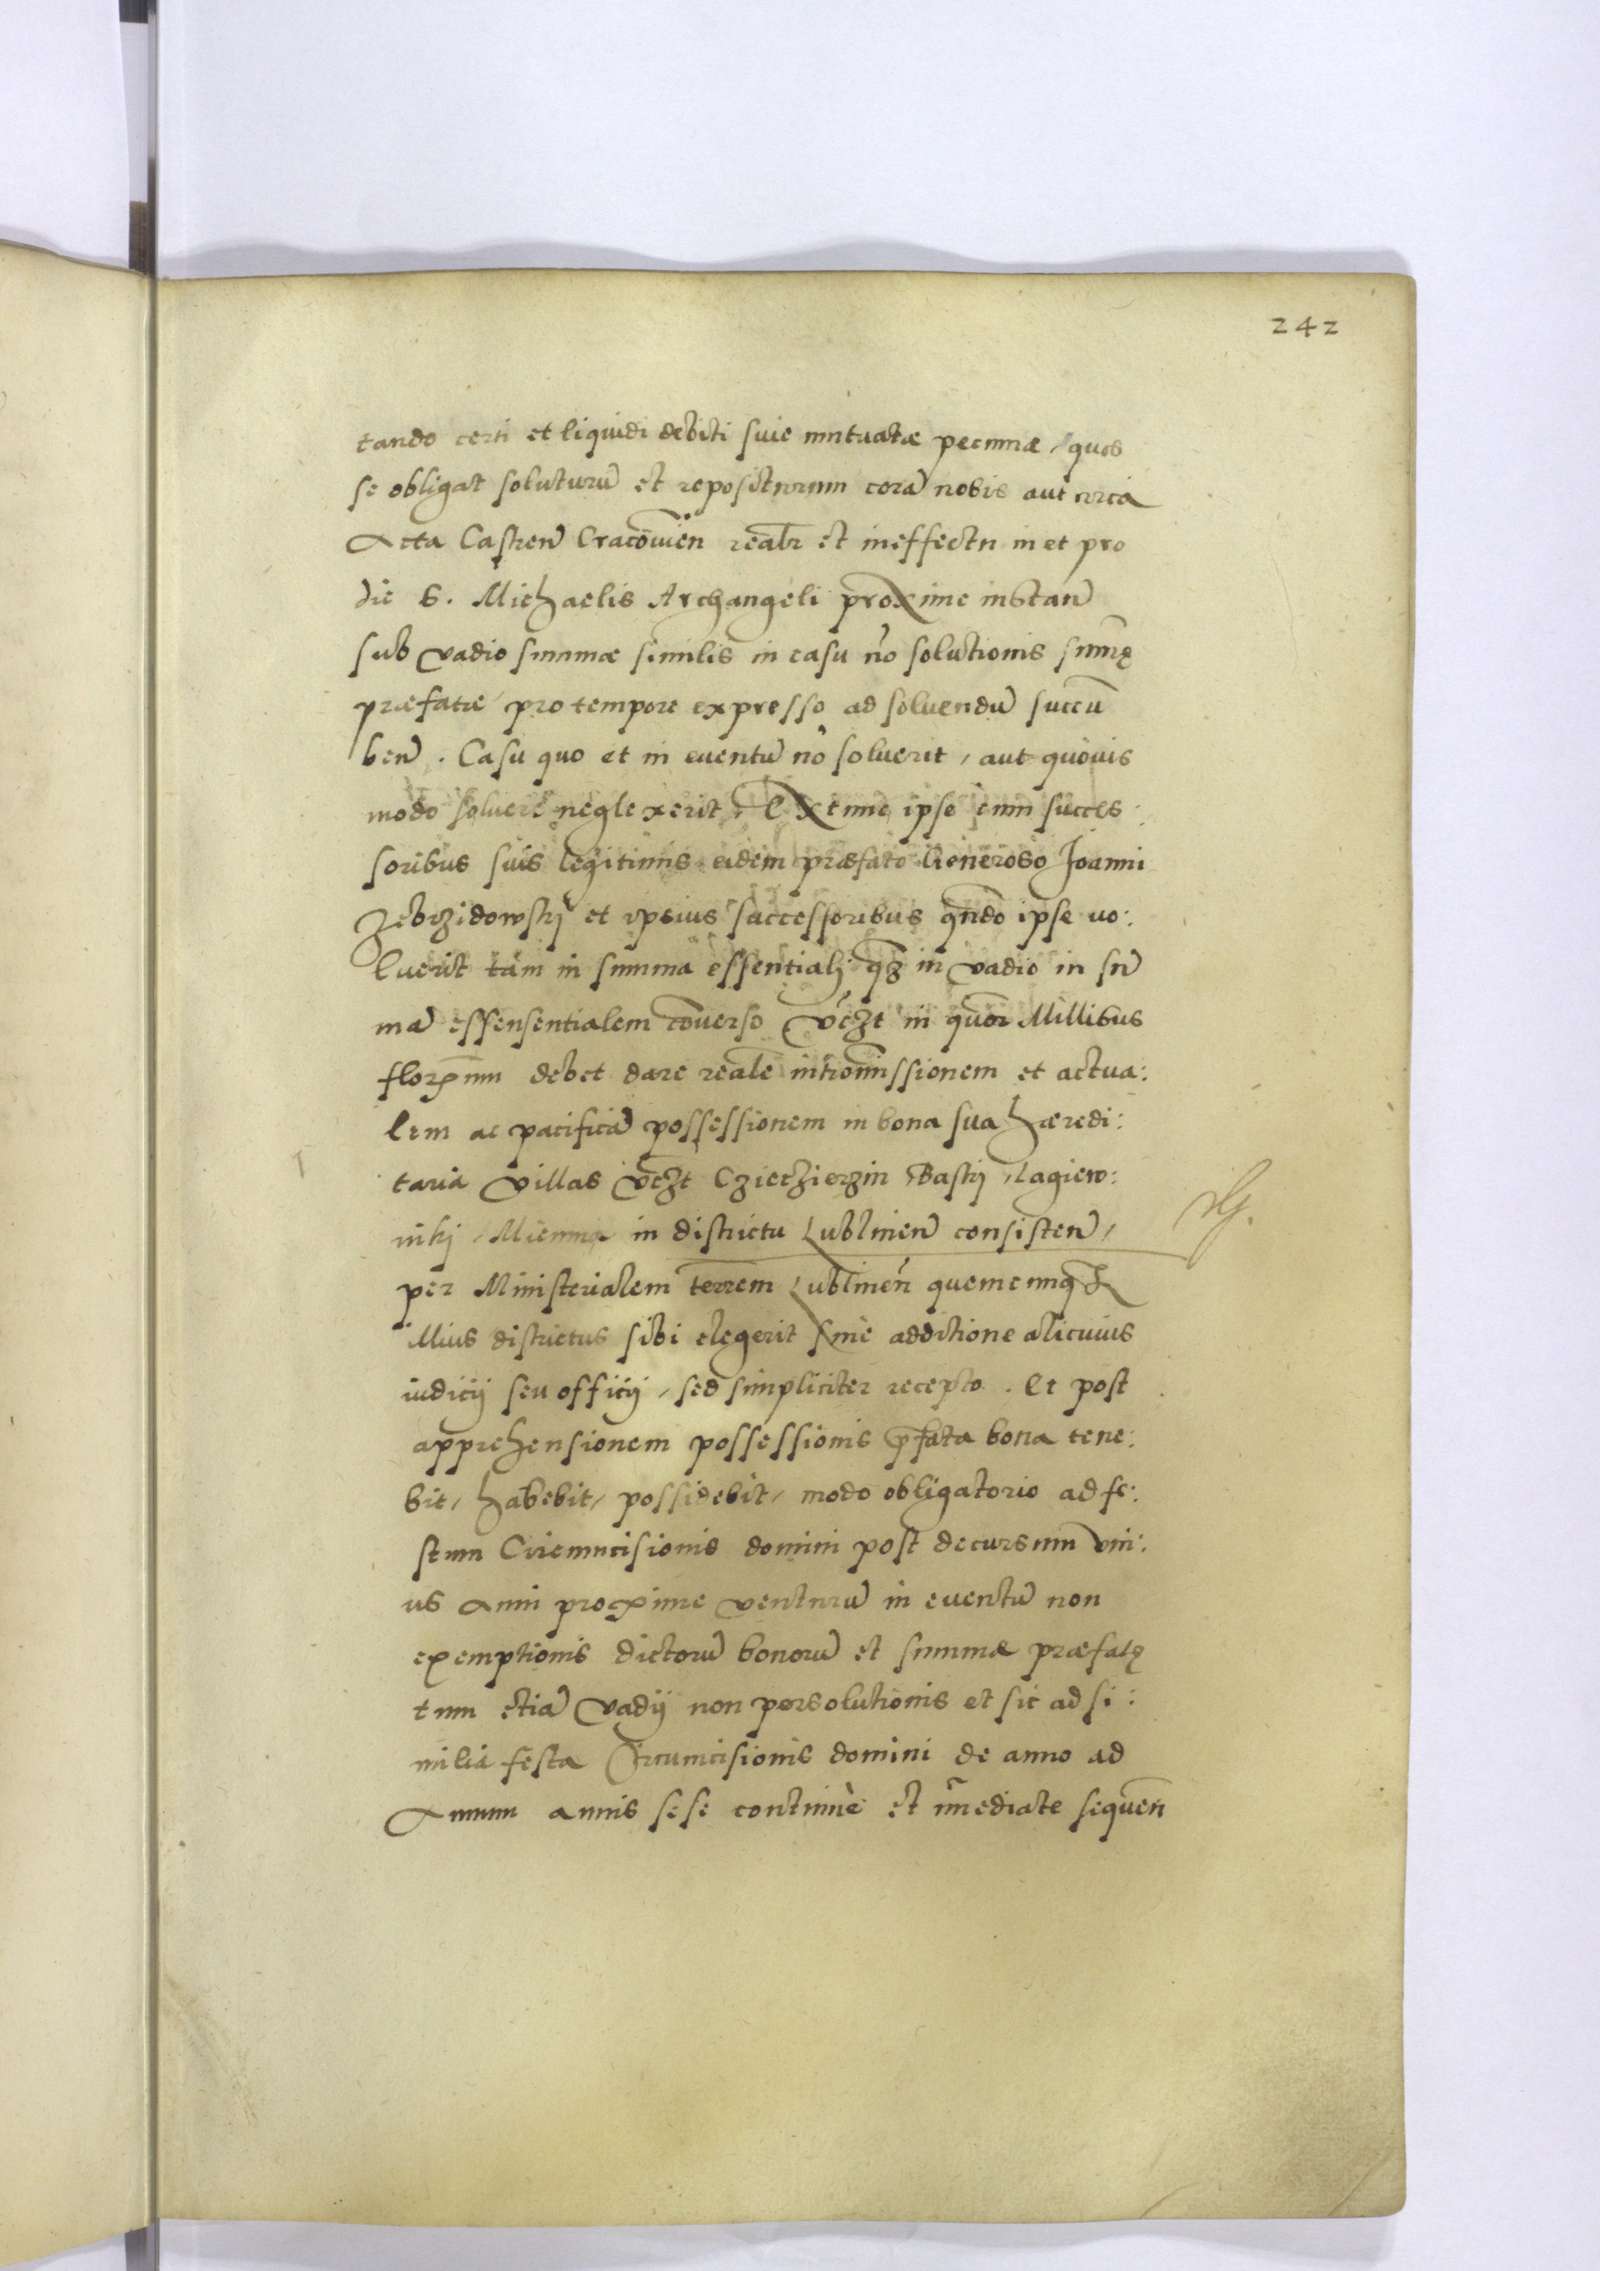 242
tando certi et liquidi debiti suie mutuatæ pecuniæ, quos
se obligat soluturũ et repositurum corã nobis aut circa
Acta Castren̄ Cracouien̄ realr̄ et in effectu in et pro
die S. Michaelis Archangeli proxime instan̄
sub vadio summæ similis in casu nō solutionis summę
præfatæ pro tempore expresso ad soluendũ succũ
ben̄. Casu quo et in euentũ nō soluerit, aut quouis
modo soluere neglexerit. Ex tunc ipse cum succes:
soribus suis legitimis eidem præfato Generoso Joanni
Zebrzidowskj et ipsius successoribus qn̄do ipse uo:
luerit tam in summa essentialj qz̄ in vadio in sum̄
mã essensentialem cōuerso vc̄zt in quor̄ Millibus
florenum debet dare realē intromissionem et actua:
lem ac pacificã possessionem in bona sua hæredi:
taria villas vc̄zt Cziechierzin Baskj, Lagiew:
nikj, in districtu Lublinen̄ consisten̄,
per Ministerialem terrem̄ Lublinen̄ quemcunqȝ
illius districtus sibi elegerit sine additione alicuius
iudicij seu officij, sed simpliciter recepto. Et post
apprehensionem possessionis p̄fata bona tene:
bit, habebit, possidebit, modo obligatorio ad fe:
stum Circumcisionis domini post decursum vni:
us anni proxime venturũ in euentũ non
exemptionis dictorũ bonorũ et summæ præfatę
tum etiã vadij non persolutionis et sic ad si:
milia festa Circumcisionis domini de anno ad
Annum annis sese continuè et im̄ediate sequen̄